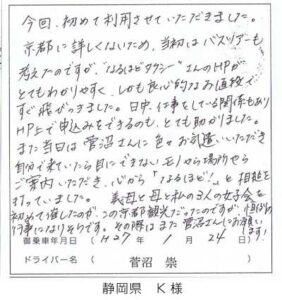 今回、初めて利用させていただきました。
京都に詳しくないため、当初はバスツアーも
考えたのですが、"なるほどタクシー"さんのHPが
とてもわかりやすく、しかも良心的なお値段で
すぐ飛びつきました。日中、仕事をしている関係もあり
HP上で申込みをできるのも、とても助かりました。
また当日は菅沼さんに色々お気遣いいただき
自分で来ていたら目にできないモノから場所やら
ご案内いただき、心から"なるほど!"と相槌を
打っていました。 義母と母と私の3人の女子会を
初めて催したのが、この京都観光だったのですが、恒例の
行事になりそうです。その際はまた菅沼さんにお願いします!
御乗車年月日 ( H27年 1月 24日 )
ドライバー名 ( 菅沼 崇 )
静岡県 K様